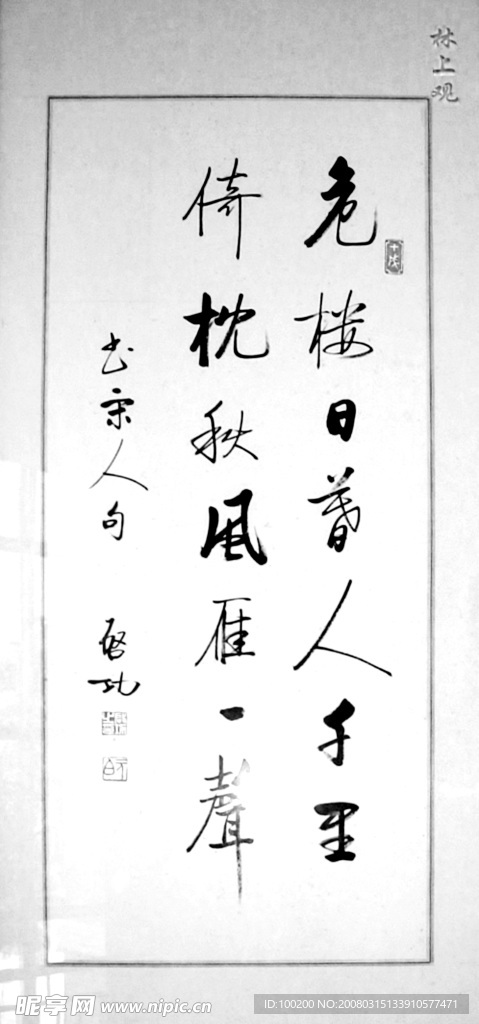 林上观
危楼日暮人千里
倚枕秋风雁一聲
书宋人句
启功
昵享网 www.nipic.cn
ID:100200 NO:20080315133910577471